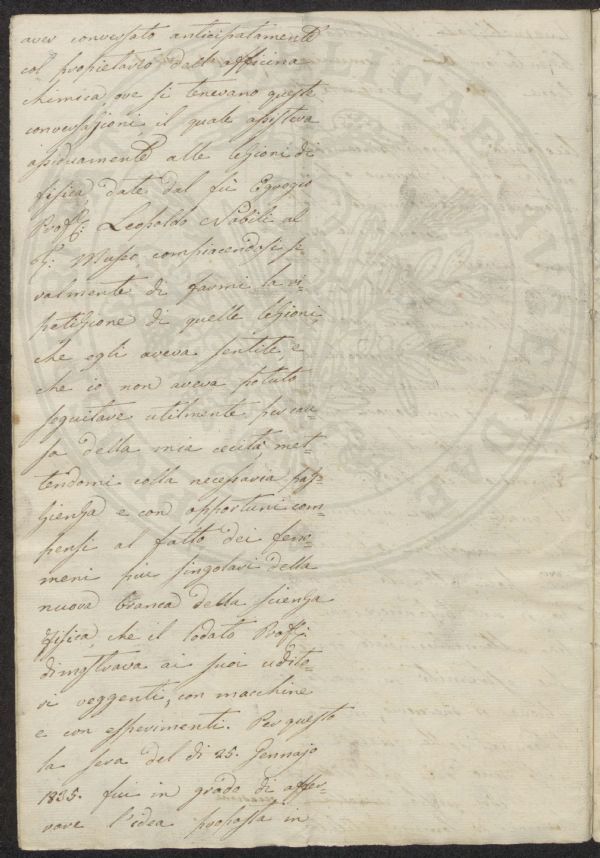 aver conversato anticipatamente
col propietario dell'officina
chimica, ove si tenevano queste
conversazioni, il quale assisteva
assiduamente alle lezioni di
fisica, date dal fù Egregio
Proff: Leopoldo Nobili al
Museo, compiacendosi si-
valmente di farmi la ri-
petizione di quelle lezioni,
che egli aveva sentite, e
che io non aveva potuto
seguitare utilmente per cau-
sa della mia cecità; met-
tendomi colla necessaria pa-
zienza e con opportuni com-
pensi al fatto dei feno-
meni più singolari della
nuova branca della scienza
fisica, che il lodato Proff:
dimostrava ai suoi udito-
ri veggenti, con macchine
e con esperimenti. Per questo
la sera del dì 25. Gennajo
1835. fui in grado di affer-
rare l'idea proposta in